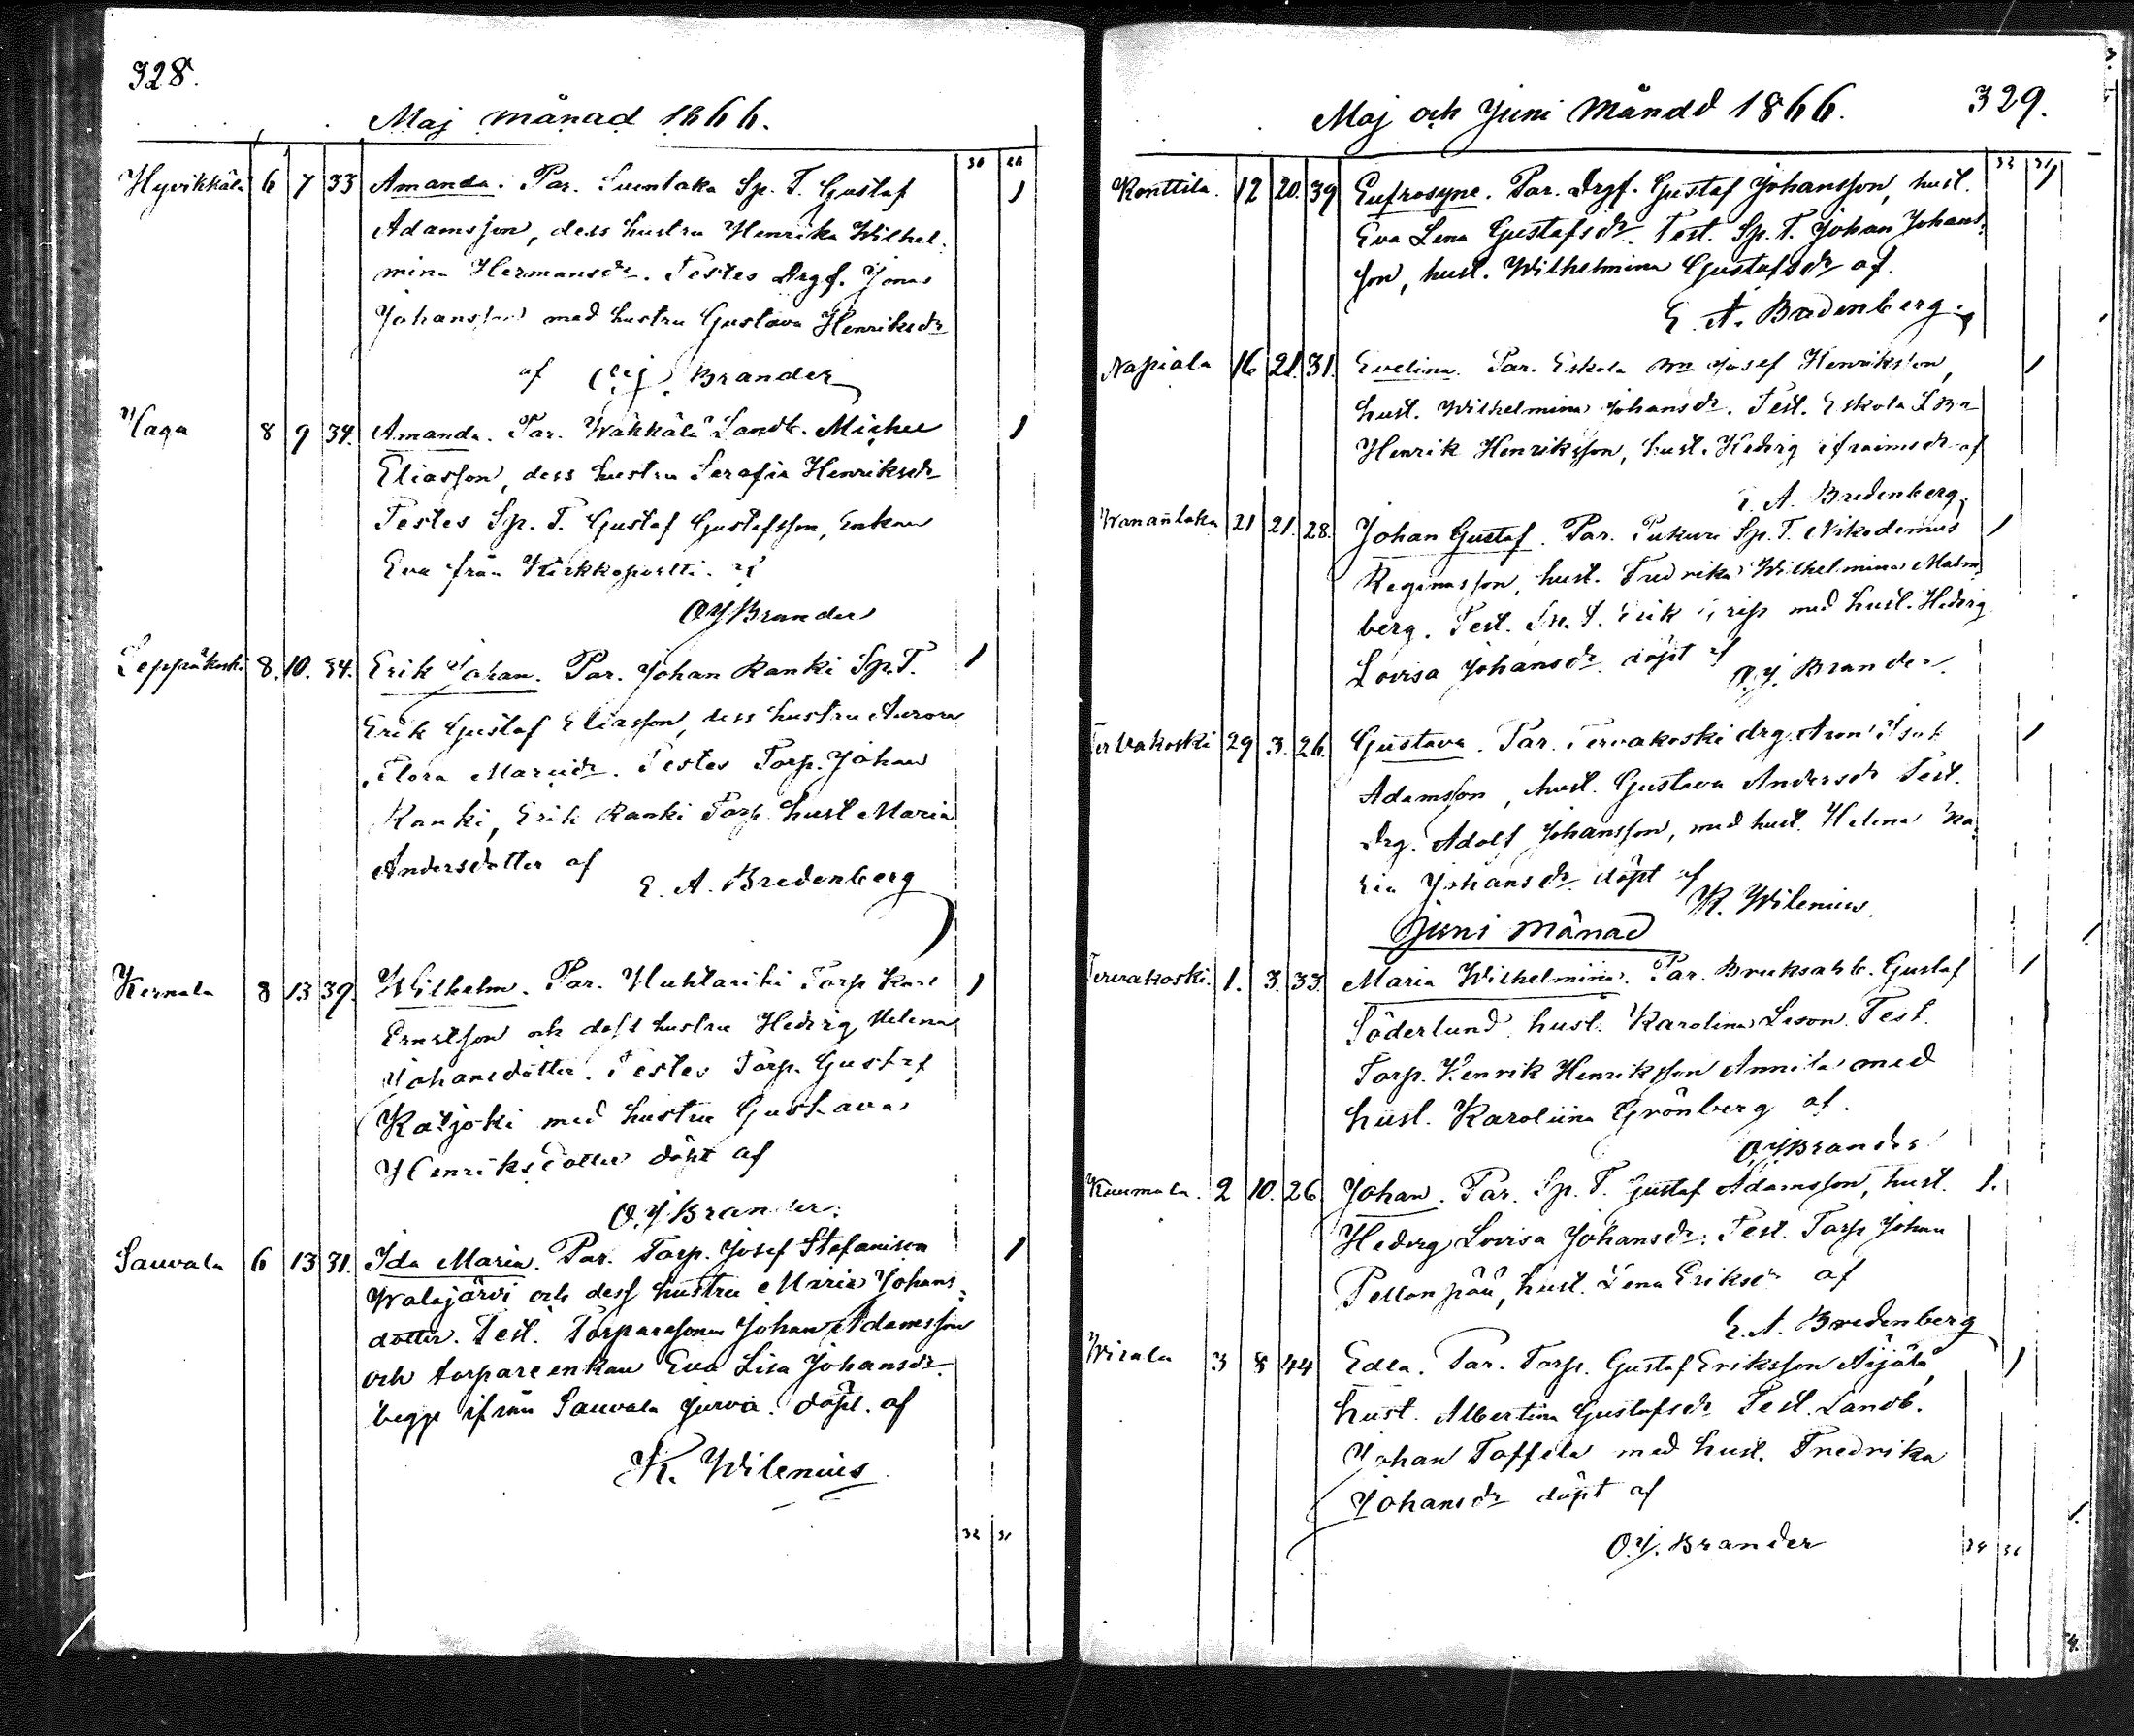 328.
Maj månad 1866.
30 28
Hyvikkälä 6 7 33 Amanda. Par. Suontaka Sp. T. Gustaf
Adamsson, dess hustru Henrika Wilhel-
mina Hermansdr. Testes Drgf. Jonas
Johansson med hustru Gustava Henriksdr
af O. J. Brander
Haga 8 9 34. Amanda. Par. Wäkkälä Landb. Michel
Eliasson, dess hustru Serafia Henriksdr
Testes Sp. T. Gustaf Gustafsson, Enkan
Eva från Kirkkoportti. af
OJBrander
Leppäkoski 8. 10. 34. Erik Johan. Par. Johan Ranki Sp. T.
Erik Gustaf Eliasson, dess hustru Aurora
Flora Mariadr. Testes Torp. Johan
Ranki, Erik Ranki Torp. hust Maria
Andersdotter af
E. A. Bredenberg
Kernala 8 13 39. Wilhelm. Par. Huhtarihi Torp Karl
Ernstson och dess hustru Hedvig Helena
Johansdotter. Testes Torp. Gustaf
Katjoki med hustru Gustava
Henriksdotter döpt af
O. J Brander.
Sauvala 6 13 31. Ida Maria. Par. Torp. Josef Stefanison
Walajärvi och dess hustru Maria Johans-
dotter. Test. Torparesonen Johan Adamsson
och torpare enkan Eva Lisa Johansdr.
begge ifrån Sauvala Jurva. döpt. af
K. Wilenius
32 31
Maj och Juni Månad 1866. 329.
33 31
Konttila. 12 20. 39 Eufrosyne. Par. Drgf. Gustaf Johansson, hust.
Eva Lena Gustafsdr. Test. Sp. T. Johan Johans-
son, hust. Wilhelmina Gustafsdr af.
E. A. Bredenberg.
Napiala 16 21. 31. Evelina. Par. Eskola Bn Josef Henriksson,
hust. Wilhelmina Johansdr. Test. Eskola
Henrik Henriksson, hust. Hedvig Efraimsdr af
E. A. Bredenberg.
Wanantaka 21 21. 28. Johan Gustaf. Par. Pukuri Sp. T. Nikodemus
Reginasson, hust. Fredrika Wilhelmina Malm-
berg. Test. Sp. T. Erik Grip med hust. Hedvig
Lovisa Johansdr. döpt af O. J. Brander.
Tervakoski 29 3. 26. Gustava. Par. Tervakoski drg. Aron Isak
Adamsson, hust. Gustava Andersdr Test.
Drg. Adolf Johansson, med hust. Helena Ma-
ria Johansdr. döpt af
K. Wilenius.
Juni Månad
Tervakoski. 1. 3. 33. Maria Wilhelmina. Par. Bruksarb. Gustaf
Söderlund hust. Karolina Leson. Test.
Torp. Henrik Henriksson Annila med
hust. Karoliina Grönberg af.
OJBrander
Kuumola. 2 10. 26 Johan. Par. Sp. T. Gustaf Adamsson, hust. 1.
Hedvig Lovisa Johansdr. Test. Torp Johan
Pellonpää, hust. Lena Eriksdr af
E. A. Bredenberg
Wirala 3 8 44 Edla. Par. Torp. Gustaf Eriksson Äijälä,
hust. Albertina Gustafsdr Test. Landb.
Johan Toffela med hust. Fredrika
Johansdr döpt af
O. J. Brander
34 36